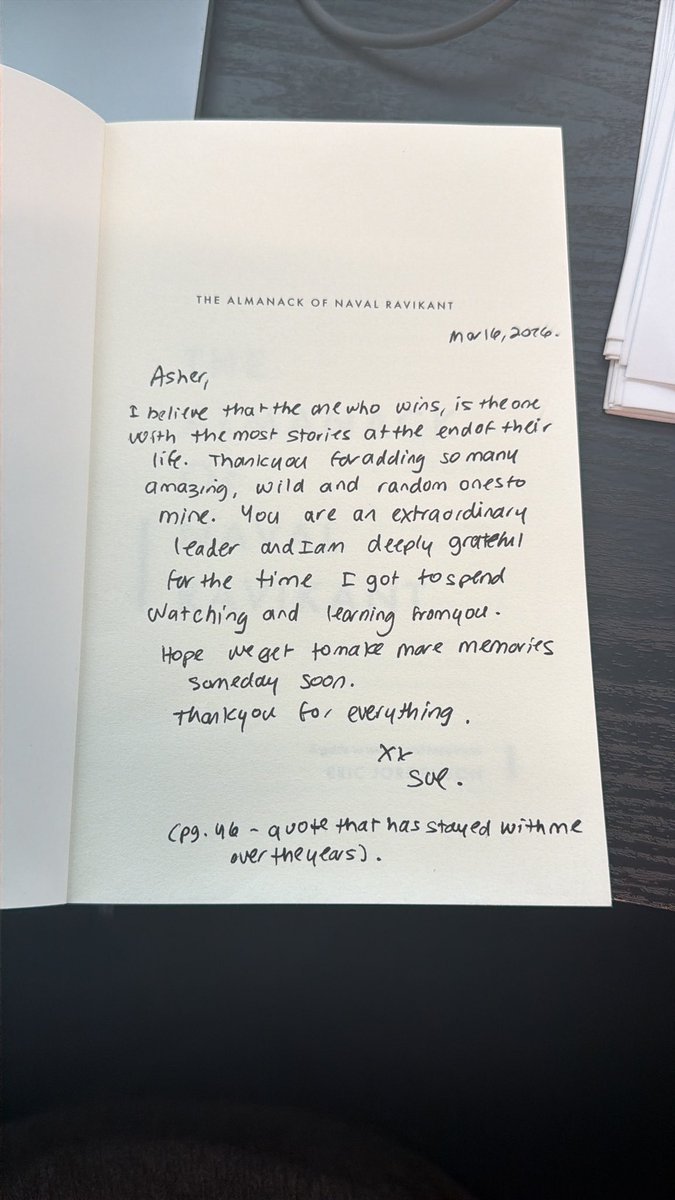 THE ALMANACK OF NAVAL RAVIKANT
Mar 16, 2026.
Asher,
I believe that the one who wins, is the one
with the most stories at the end of their
life. Thank you for adding so many
amazing, wild and random ones to
mine. You are an extraordinary
leader and I am deeply grateful
for the time I got to spend
watching and learning from you.
Hope we get to make more memories
someday soon.
Thank you for everything.
xx
Sue.
(pg. 46 - quote that has stayed with me
over the years).